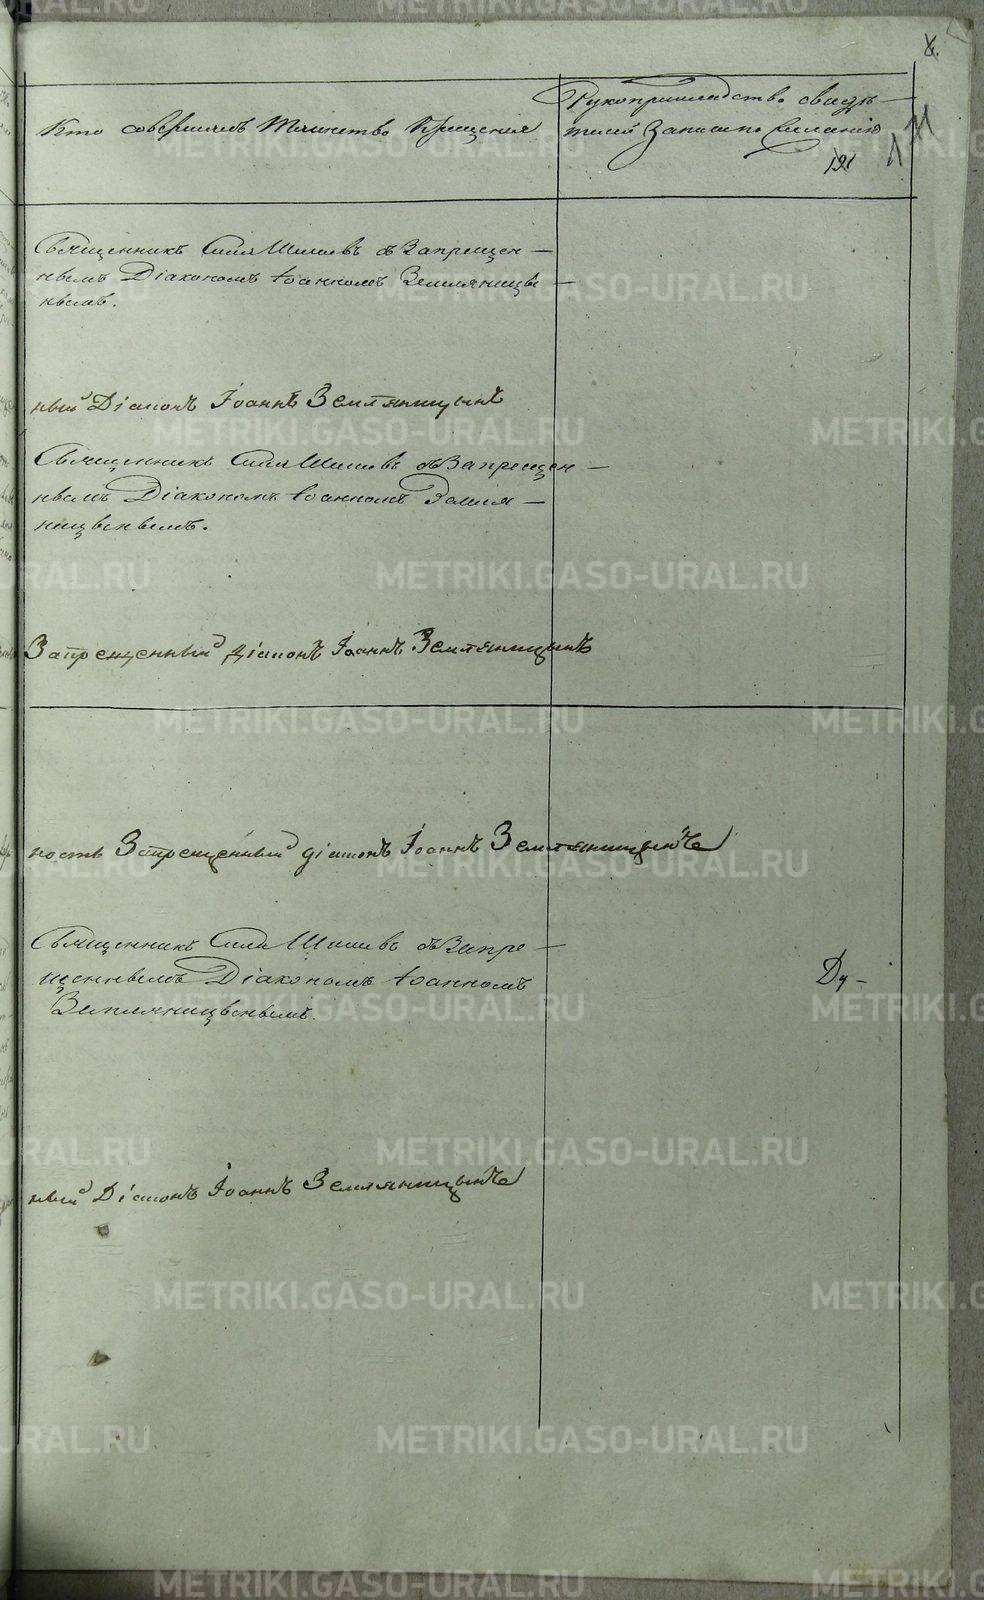 Кто совершалъ Таинство Крещенія
Рукоприкладство свидѣ—
телей Записи по Желанію
191
171
Священникъ Сила Шишевъ съ Запрещен—
нымъ Діакономъ Іоанномъ Земляницы—
нымъ.
ный Діаконъ Іоаннъ Земляницынъ
Священникъ Сила Шишевъ съ Запрещен—
нымъ Діакономъ Іоанномъ Земля—
ницынымъ.
Запрещенный діаконъ Іоаннъ Земляницынъ
ность Запрещенный діаконъ Іоаннъ Земляницынъ
Священникъ Сила Шишевъ съ Запре—
щеннымъ Діакономъ Іоанномъ
Земляницынымъ.
Ду—
ный Діаконъ Іоаннъ Земляницынъ
METRIKI.GASO-URAL.RU